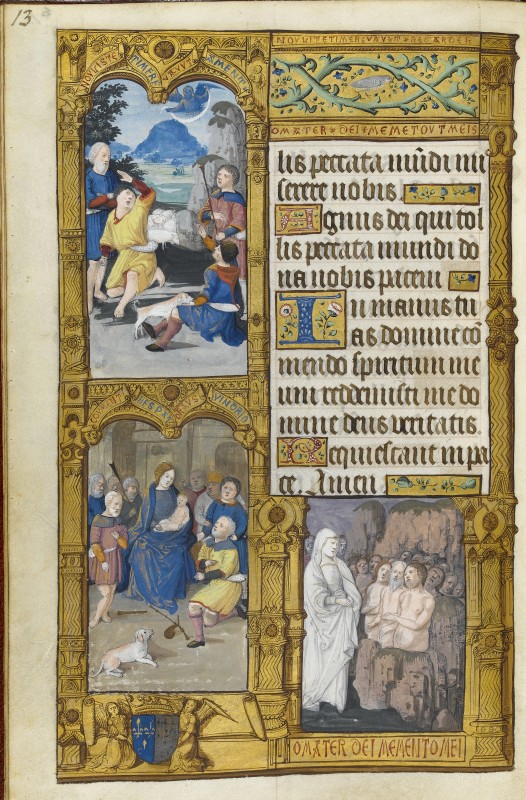 13
NOLITE TIMERE
O MATER DEI MEMETOVT MEIS
lis peccata mũdi mi
serere nobis
Agnus dei qui tol
lis peccata mundi do
na nobis pacem
In manus tu
as domine cõ
mendo spiritum me
um redemisti me do
mine deus veritatis.
Requiescant in pa
ce. Amen
O MATER DEI MEMENTO MEI